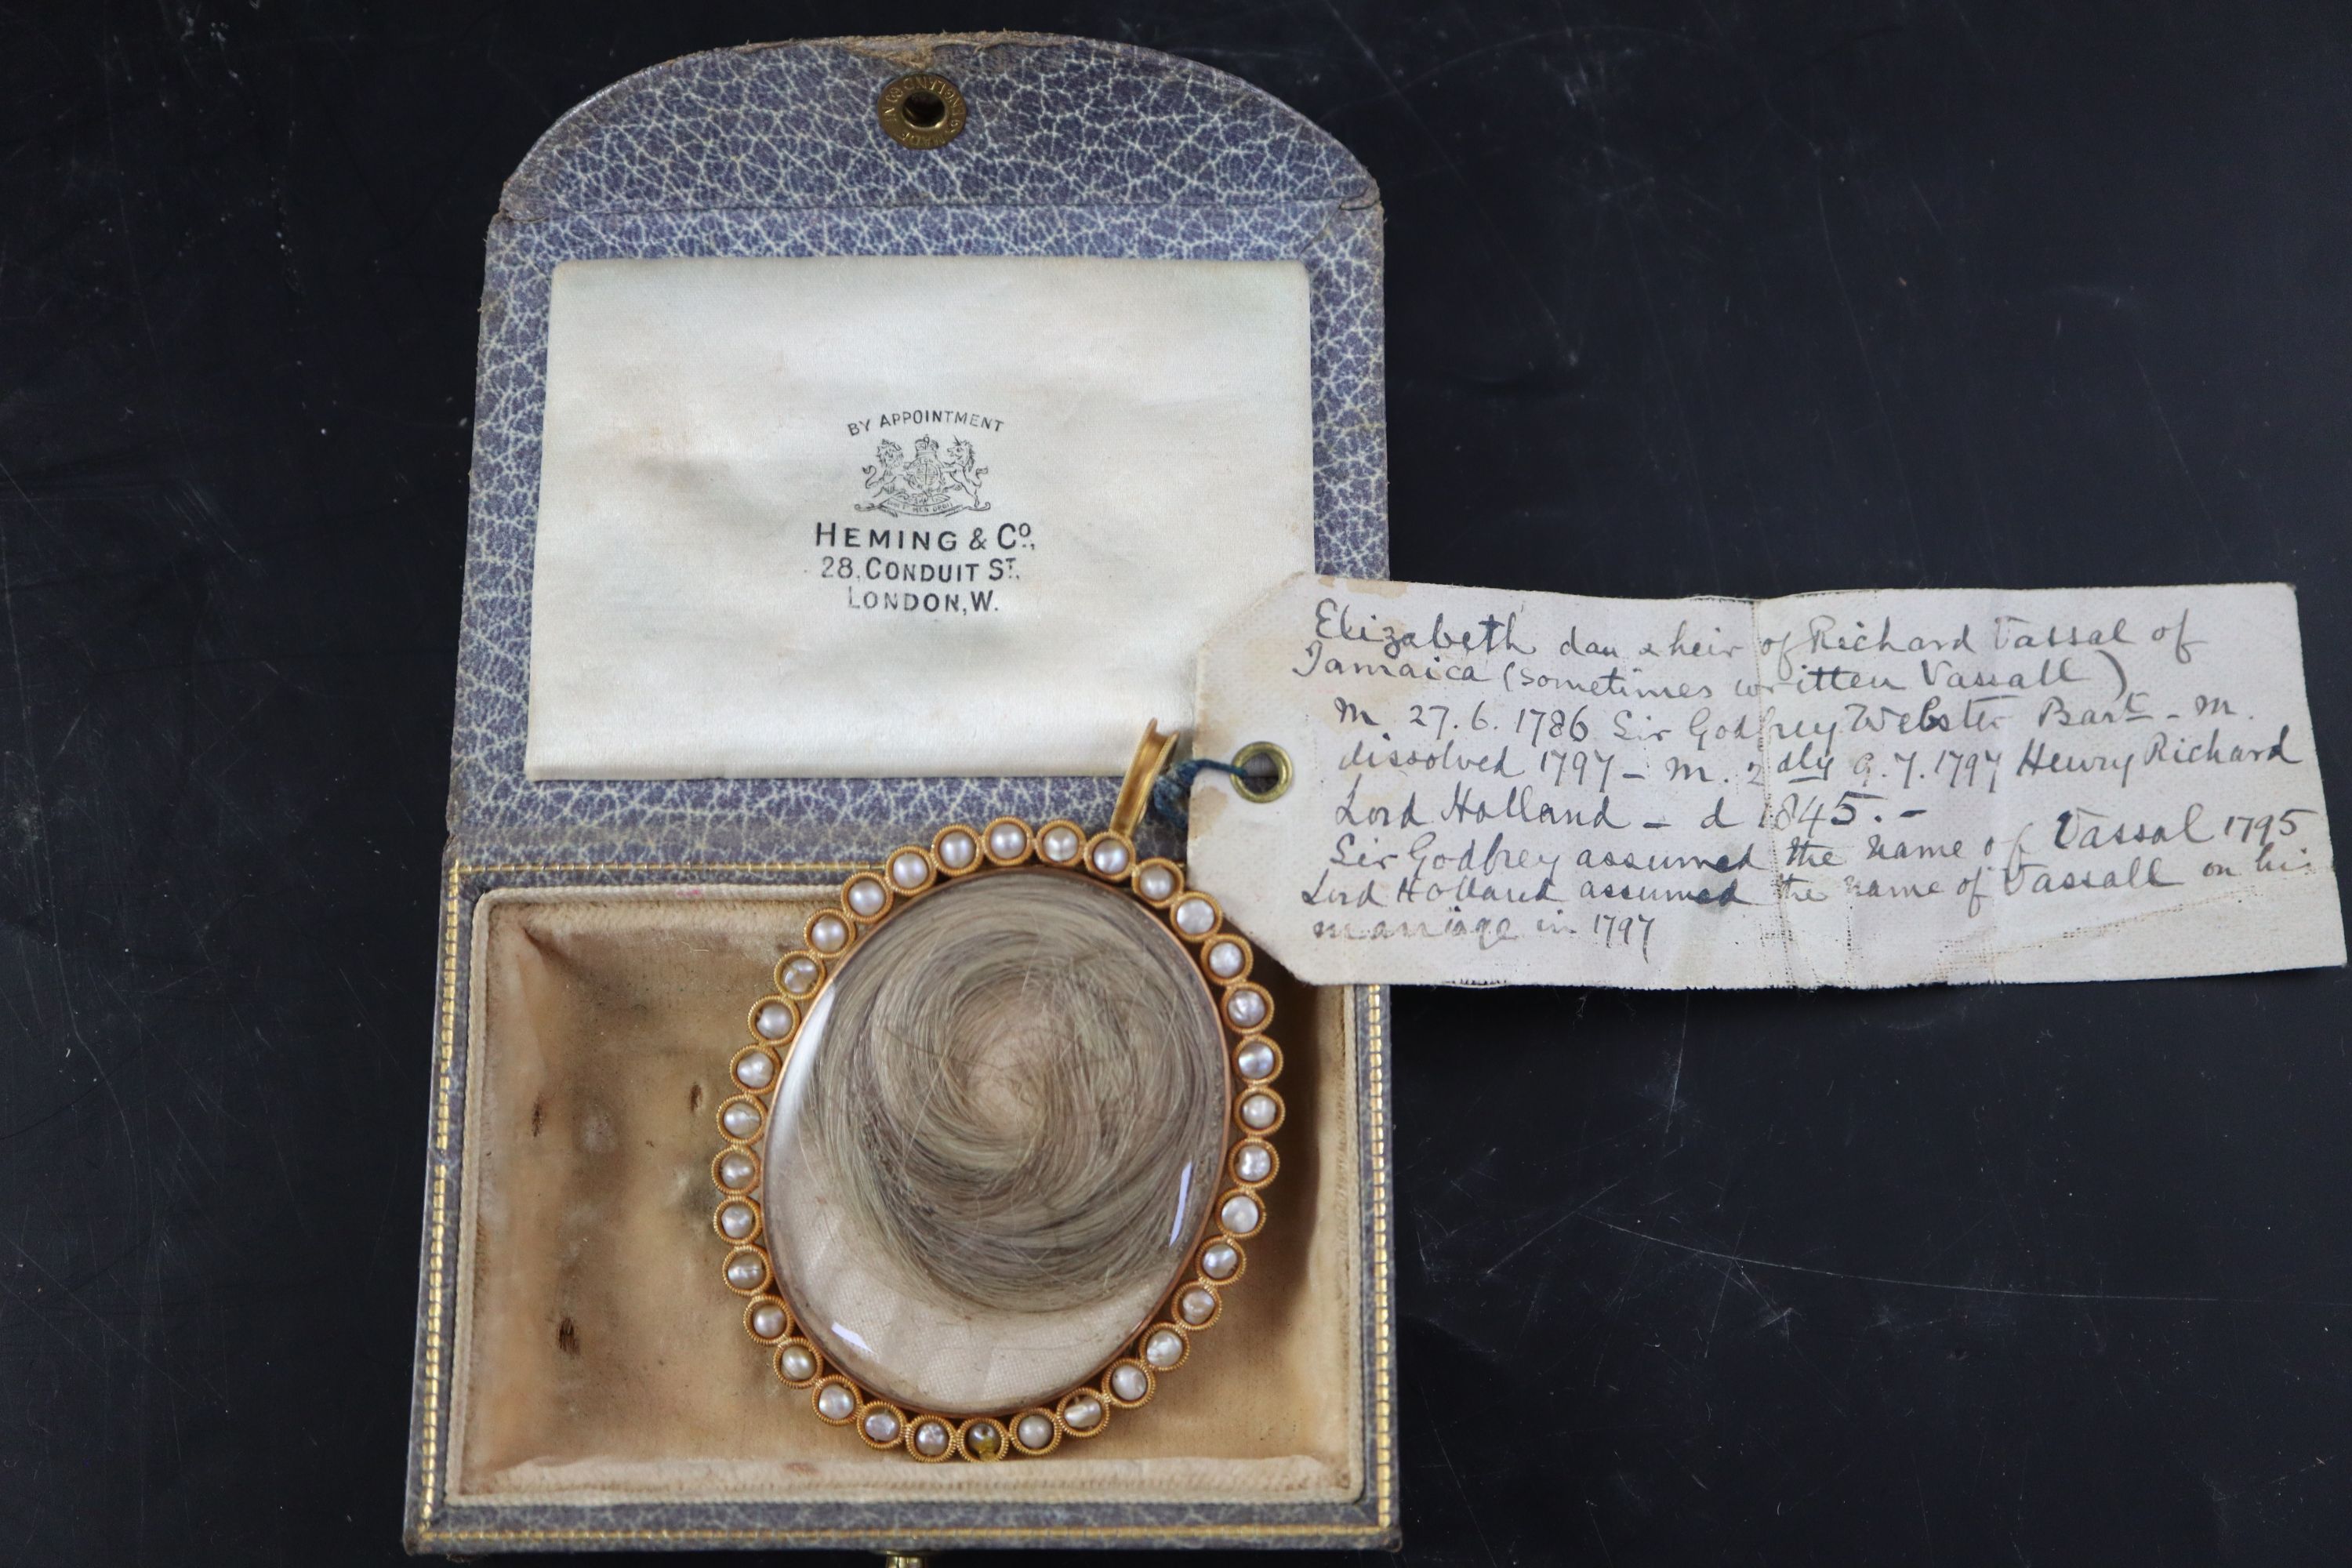 BY APPOINTMENT
HEMING & Co.,
28, CONDUIT ST.,
LONDON, W.
Elizabeth dau & heir of Richard Vassal of
Jamaica (sometimes written Vassall)
m. 27.6.1786 Sir Godfrey Webster Bart - m.
dissolved 1797 - m. 2dly 9.7.1797 Henry Richard
Lord Holland - d 1845. -
Sir Godfrey assumed the name of Vassal 1795
Lord Holland assumed the name of Vassall on his
marriage in 1797